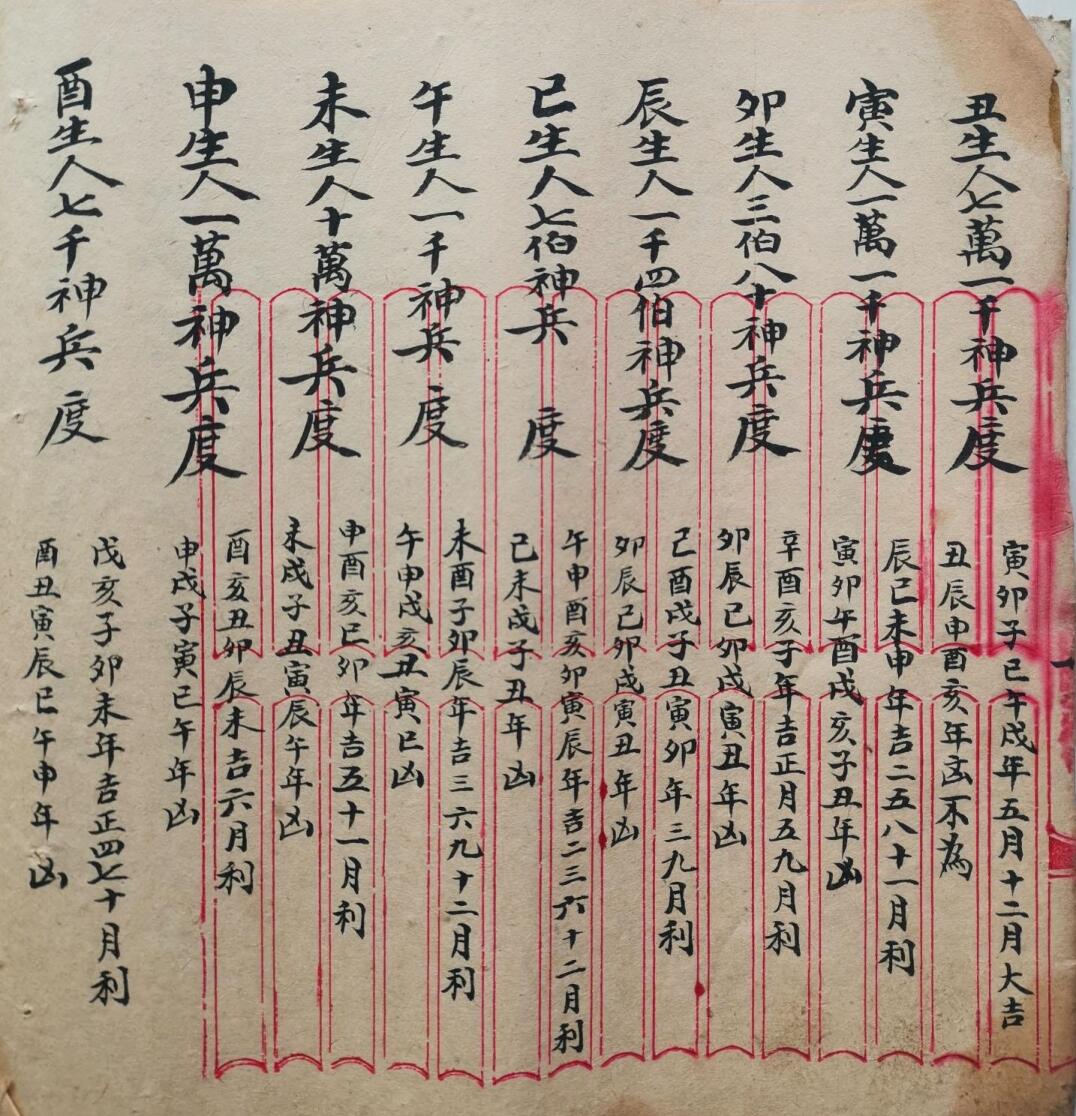 丑生人七萬一千神兵度
寅卯子巳午戌年五月十二月大吉
丑辰申酉亥年凶不為
寅生人一萬一千神兵度
辰巳未申年吉二五八十一月利
寅卯午酉戌亥子丑年凶
卯生人三伯八十神兵度
辛酉亥子年吉正月五九月利
卯辰巳卯戌寅丑年凶
辰生人一千四伯神兵度
己酉戌子丑寅卯年三九月利
卯辰巳卯戌寅丑年凶
巳生人七伯神兵度
午申酉亥卯寅辰年吉二三六十二月利
己未戌子丑年凶
午生人一千神兵度
未酉子卯辰年吉三六九十二月利
午申戌亥丑寅巳凶
未生人十萬神兵度
申酉亥巳卯年吉五十一月利
未戌子丑寅辰午年凶
申生人一萬神兵度
酉亥丑卯辰未吉六月利
申戌子寅巳午年凶
酉生人七千神兵度
戊亥子卯未年吉正四七十月利
酉丑寅辰巳午申年凶